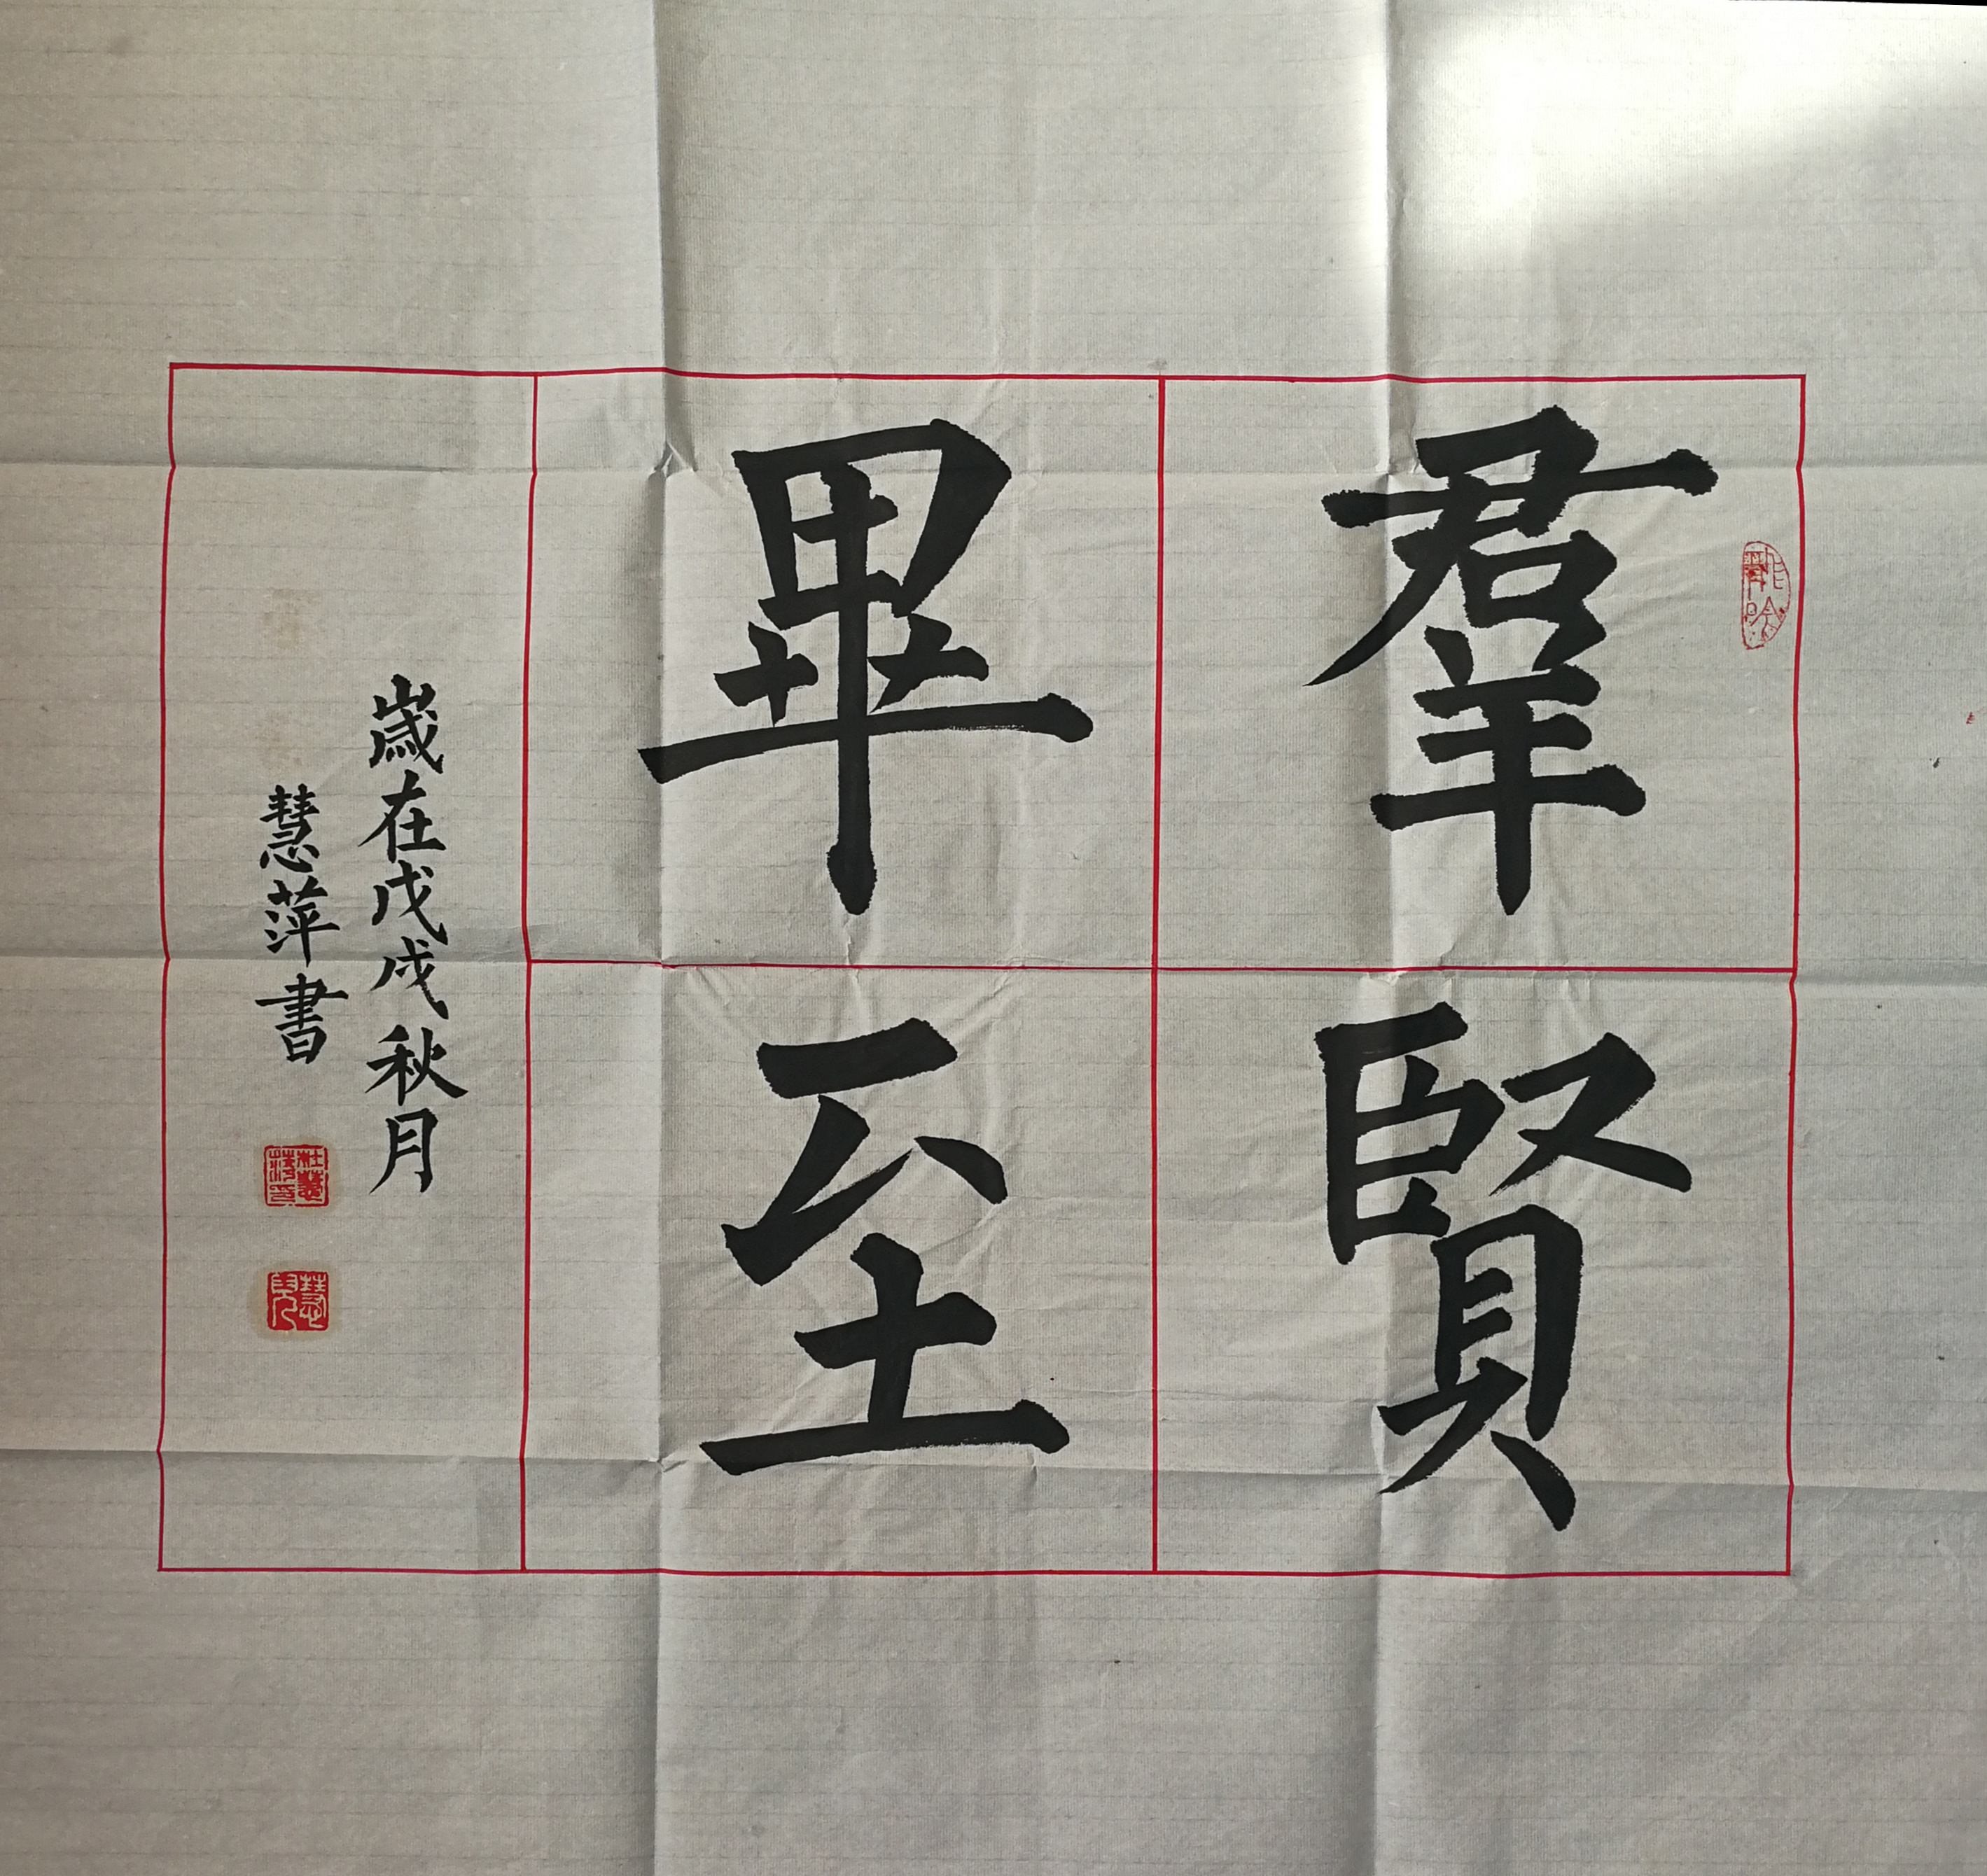 羣賢
畢至
歲在戊戌秋月
慧萍書